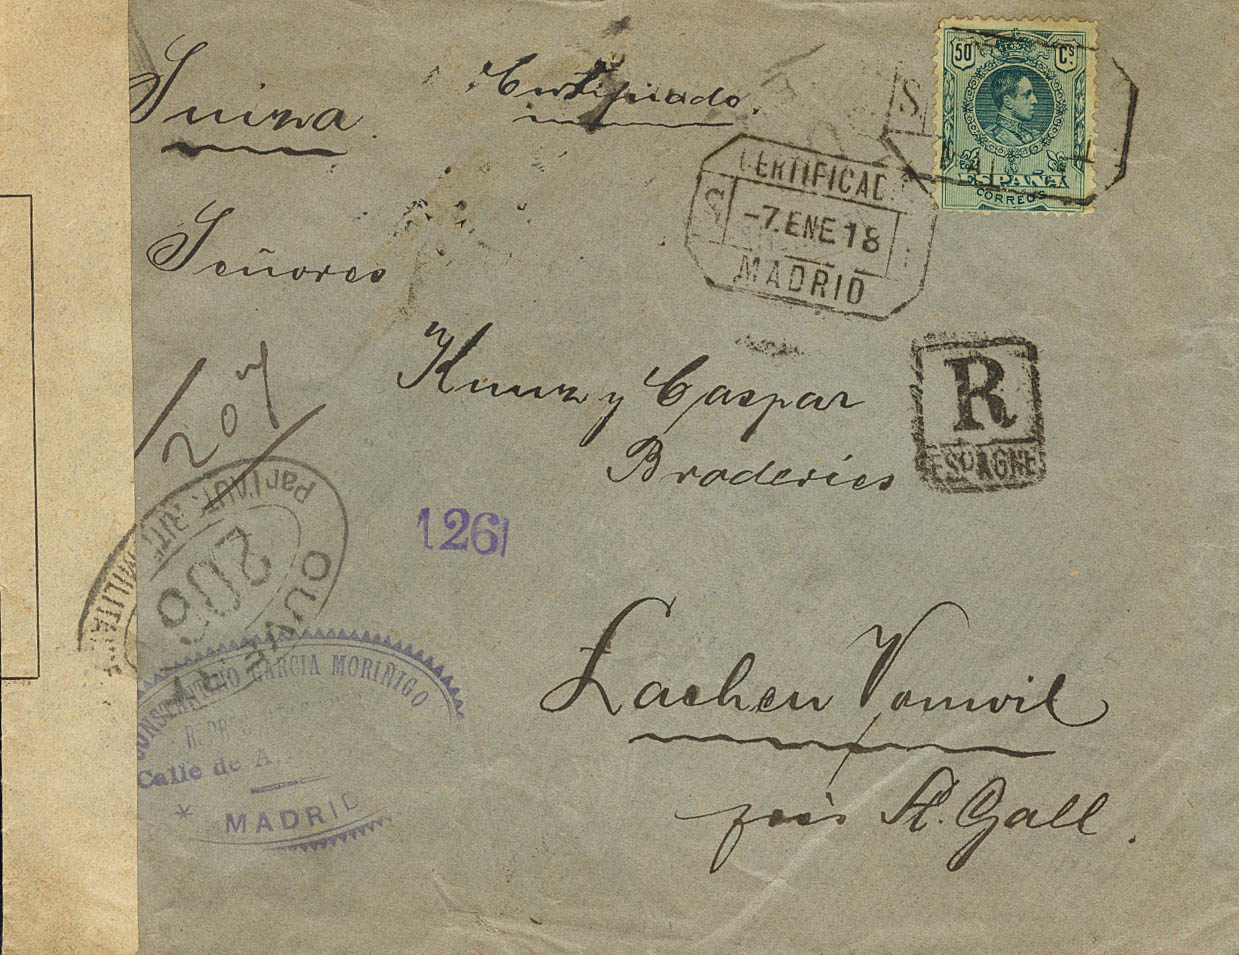 Suiza.
Certificado.
50 Cs
ESPAÑA
CORREOS
CERTIFICAD
-7.ENE 18
MADRID
Señores
207
Kunz y Caspar
Broderies
R
ESPAGNE
126
OUVERT
par l'AUTORITÉ MILITAIRE
206
CONSTANTINO GARCIA MORIÑIGO
Calle de A
* MADRID
Lachen Vonwil
près St. Gall.